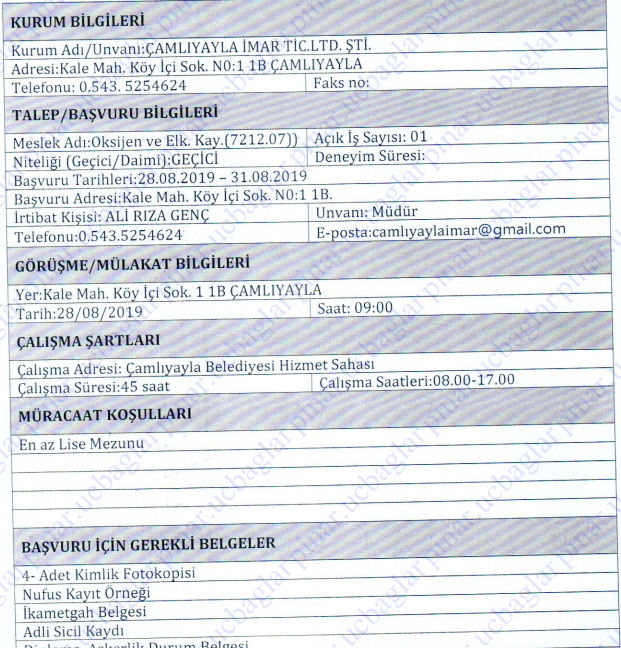 KURUM BİLGİLERİ
Kurum Adı/Unvanı:ÇAMLIYAYLA İMAR TİC.LTD. ŞTİ.
Adresi:Kale Mah. Köy İçi Sok. N0:1 1B ÇAMLIYAYLA
Telefonu: 0.543. 5254624 Faks no:
TALEP/BAŞVURU BİLGİLERİ
Meslek Adı:Oksijen ve Elk. Kay.(7212.07)) Açık İş Sayısı: 01
Niteliği (Geçici/Daimi):GEÇİCİ Deneyim Süresi:
Başvuru Tarihleri:28.08.2019 – 31.08.2019
Başvuru Adresi:Kale Mah. Köy İçi Sok. N0:1 1B.
İrtibat Kişisi: ALİ RIZA GENÇ Unvanı: Müdür
Telefonu:0.543.5254624 E-posta:camlıyaylaimar@gmail.com
GÖRÜŞME/MÜLAKAT BİLGİLERİ
Yer:Kale Mah. Köy İçi Sok. 1 1B ÇAMLIYAYLA
Tarih:28/08/2019 Saat: 09:00
ÇALIŞMA ŞARTLARI
Çalışma Adresi: Çamlıyayla Belediyesi Hizmet Sahası
Çalışma Süresi:45 saat Çalışma Saatleri:08.00-17.00
MÜRACAAT KOŞULLARI
En az Lise Mezunu
BAŞVURU İÇİN GEREKLİ BELGELER
4- Adet Kimlik Fotokopisi
Nufus Kayıt Örneği
İkametgah Belgesi
Adli Sicil Kaydı
Diploma, Askerlik Durum Belgesi